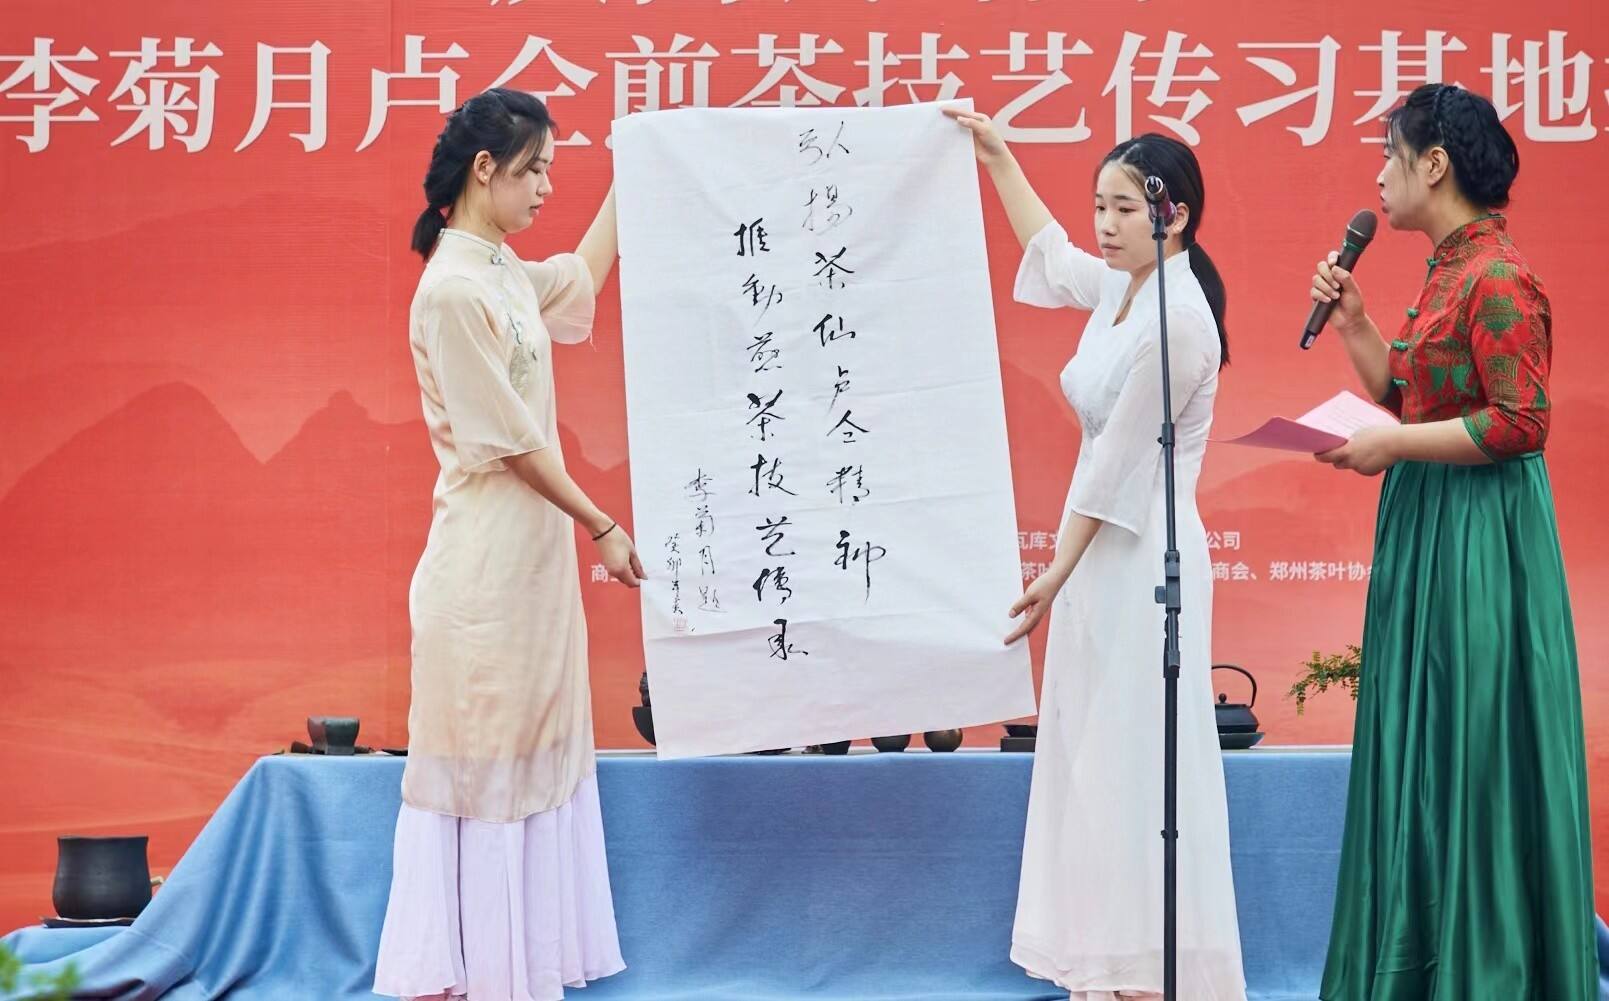 李菊月卢仝煎茶技艺传习基地
弘揚茶仙卢仝精神
推動煎茶技艺傳承
李菊月題
癸卯年夏
瓦库文
公司
商
茶叶
商会、郑州茶叶协会